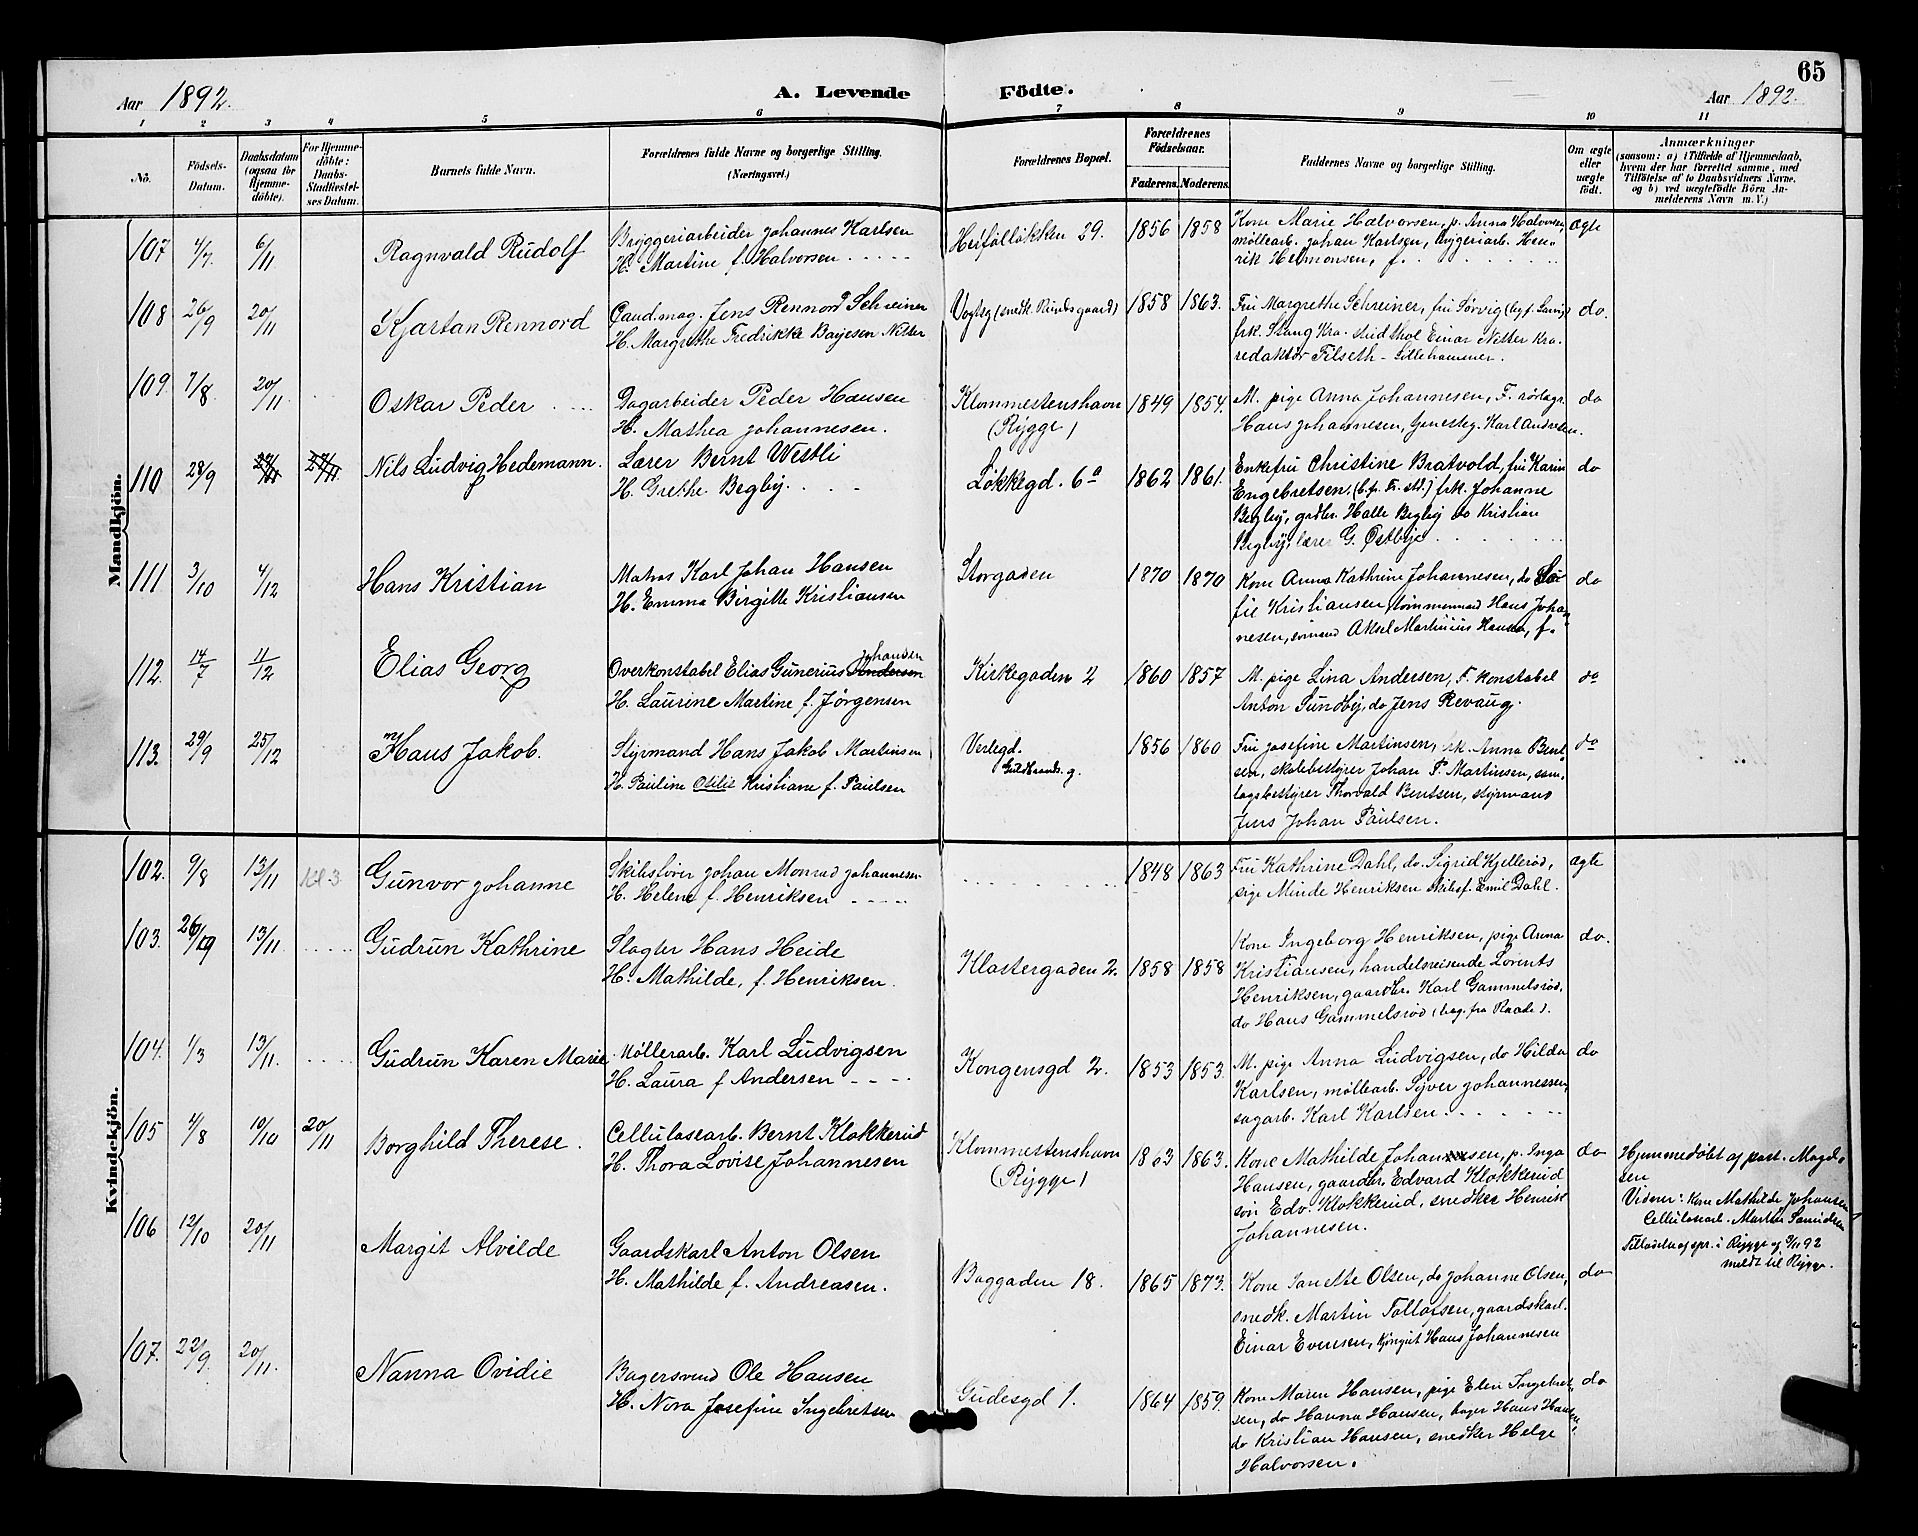 65
Aar 1892.
A. Levende Födte.
Aar 1892.
1 2 3 4 5 6 7 8 9 10 11
Nö.
Födsels-Datum.
Daabsdatum (ogsaa for Hjemme-döbte).
For Hjemme-döbte: Daabs-Stadfæstel-ses Datum.
Barnets fulde Navn.
Forældrenes fulde Navne og borgerlige Stilling. (Næringsvei.)
Forældrenes Bopæl.
Forældrenes Födselsaar.
Faderens. Moderens.
Faddernes Navne og borgerlige Stilling.
Om ægte eller uægte födt.
Anmærkninger
(saasom: a) i Tilfælde af Hjemmedaab,
hvem der har forrettet samme, med
Tilföielse af to Daabsvidners Navne,
og b) ved uægtefödte Börn An-
melderens Navn m. V.)
Mandkjön.
107 4/7 6/11 Ragnvald Rudolf
Bryggeriarbeider Johannes Karlsen
H. Martine f. Halvorsen
29. 1856 1858
Kone Marie Halvorsen, p. Anna Halvorsen,
møllearb. Johan Karlsen, bryggeriarb. Hen-
rik Hermonsen, f.
ægte
108 26/9 20/11 Kjartan Rennord
Cand. mag. Jens Rennord Schreiner
H. Margrethe Fredrikke Bøyesen Nitter
Vogtsg (snedk. Runds gaard) 1858 1863.
Fru Margrethe Schreiner, fru Sørvig
frk. Stang Kra. stud. theol Einar Nitter Kra.
redaktør Filseth - Lillehammer.
do.
109. 7/8. 20/11 Oskar Peder
Dagarbeider Peder Hansen
H. Mathea Johannesen.
Klommestenshavn
(Rygge) 1849 1854.
M. pige Anna Johannesen, F. rørlægr.
Hans Johannesen, Karl Andresen.
do
110 28/9 27/11 27/11. Nils Ludvig Hedemann.
Lærer Bernt Westli
H. Grethe Begby.
Løkkegd. 6a 1862 1861.
Enkefru Christine Bratvold, fru Karin
Engebretsen, (b. p. Fr. std.) frk. Johanne
Begby, grdbr. Halle Begby do Kristian
Begby, lærer G. Østbye
do
111 3/10 4/12 Hans Kristian
Matros Karl Johan Hansen
H. Emma Birgitte Kristiansen
Storgaden 1870 1870
Kone Anna Kathrine Johannesen, do So-
fie Kristiansen, tømmermand Hans Johan-
nesen, sømand Aksel Martinius Hansen, f.
do
112. 14/7 11/12 Elias Georg
Johansen
Overkonstabel Elias Gunerius Andersen
H. Laurine Martine f. Jørgensen
Kirkegaden 2 1860 1857
M. pige Lina Andersen, F. konstabel
Anton Sundby, do Jens Revaug.
do
113. 29/9 25/12 Hans Jakob.
Styrmand Hans Jakob Martinsen
H. Pauline Otilie Kristiane f. Paulsen
Verlegd.
Guldbrands. g. 1856 1860
Fru Josefine Martinsen, frk. Anna Bent-
sen, skolebestyrer Johan P. Martinsen, sam-
lagsbestyrer Thorvald Bentsen, styrmand
Jens Johan Paulsen.
do
Kvindekjön.
102. 9/8 13/11 Kl 3 Gunvor Johanne
Skibsfører Johan Monrad Johannesen
H. Helene f. Henriksen
1848 1863
Fru Kathrine Dahl, do. Sigrid Kjellerød,
pige Minde Henriksen skibsf. Emil Dahl.
ægte
103. 26/9 13/11. Gudrun Kathrine
Slagter Hans Heide
H. Mathilde, f. Henriksen.
Klostergaden 2. 1858 1858
Kone Ingeborg Henriksen, pige Anna
Kristiansen, handelsreisende Lorents
Henriksen, gaardbr. Karl Gammelsrød,
do Hans Gammelsrød (beg. fra Raade).
do.
104. 1/3 13/11. Gudrun Karen Marie
Møllerarb. Karl Ludvigsen
H. Laura f Andersen
Kongensgd 2. 1853 1853.
M. pige Anna Ludvigsen, do Hilda
Karlsen, møllearb. Syver Johannessen,
sagarb. Karl Karlsen.
do
105 4/8 10/10 20/11 Borghild Therese.
Cellulosearb. Bernt Klokkerud
H. Thora Lovise Johannesen
Klommestenshavn
(Rygge) 1863 1863.
Kone Mathilde Johansen, p. Inga
Hansen, gaardbr. Edvard Klokkerud
søn Edv. Klokkerud, snedker Henrik
Johannesen.
do
Hjemmedøbt af past. Magd-
sen
Vidner: Kone Mathilde Johansen
Cellulosearb. Martin
i Rygge af 9/11 92
meldt til Rygge.
106 12/10 20/11 Margit Alvilde
Gaardskarl Anton Olsen
H. Mathilde f. Andreasen.
Baggaden 18. 1865 1873.
Kone Janette Olsen, do Johanne Olsen,
snedk. Martin Tollofsen, gaardskarl
Einar Evensen, Hans Johannesen
do
107. 22/9. 20/11. Nanna Ovidie
Bagersvend Ole Hansen
H. Nora Josefine Ingebretsen
Gudesgd 1. 1864 1859.
Kone Maren Hansen, pige Elen Ingebret-
sen, do Hanna Hansen, bager Hans Hansen,
do Kristian Hansen, snedker Helge
Halvorsen.
do